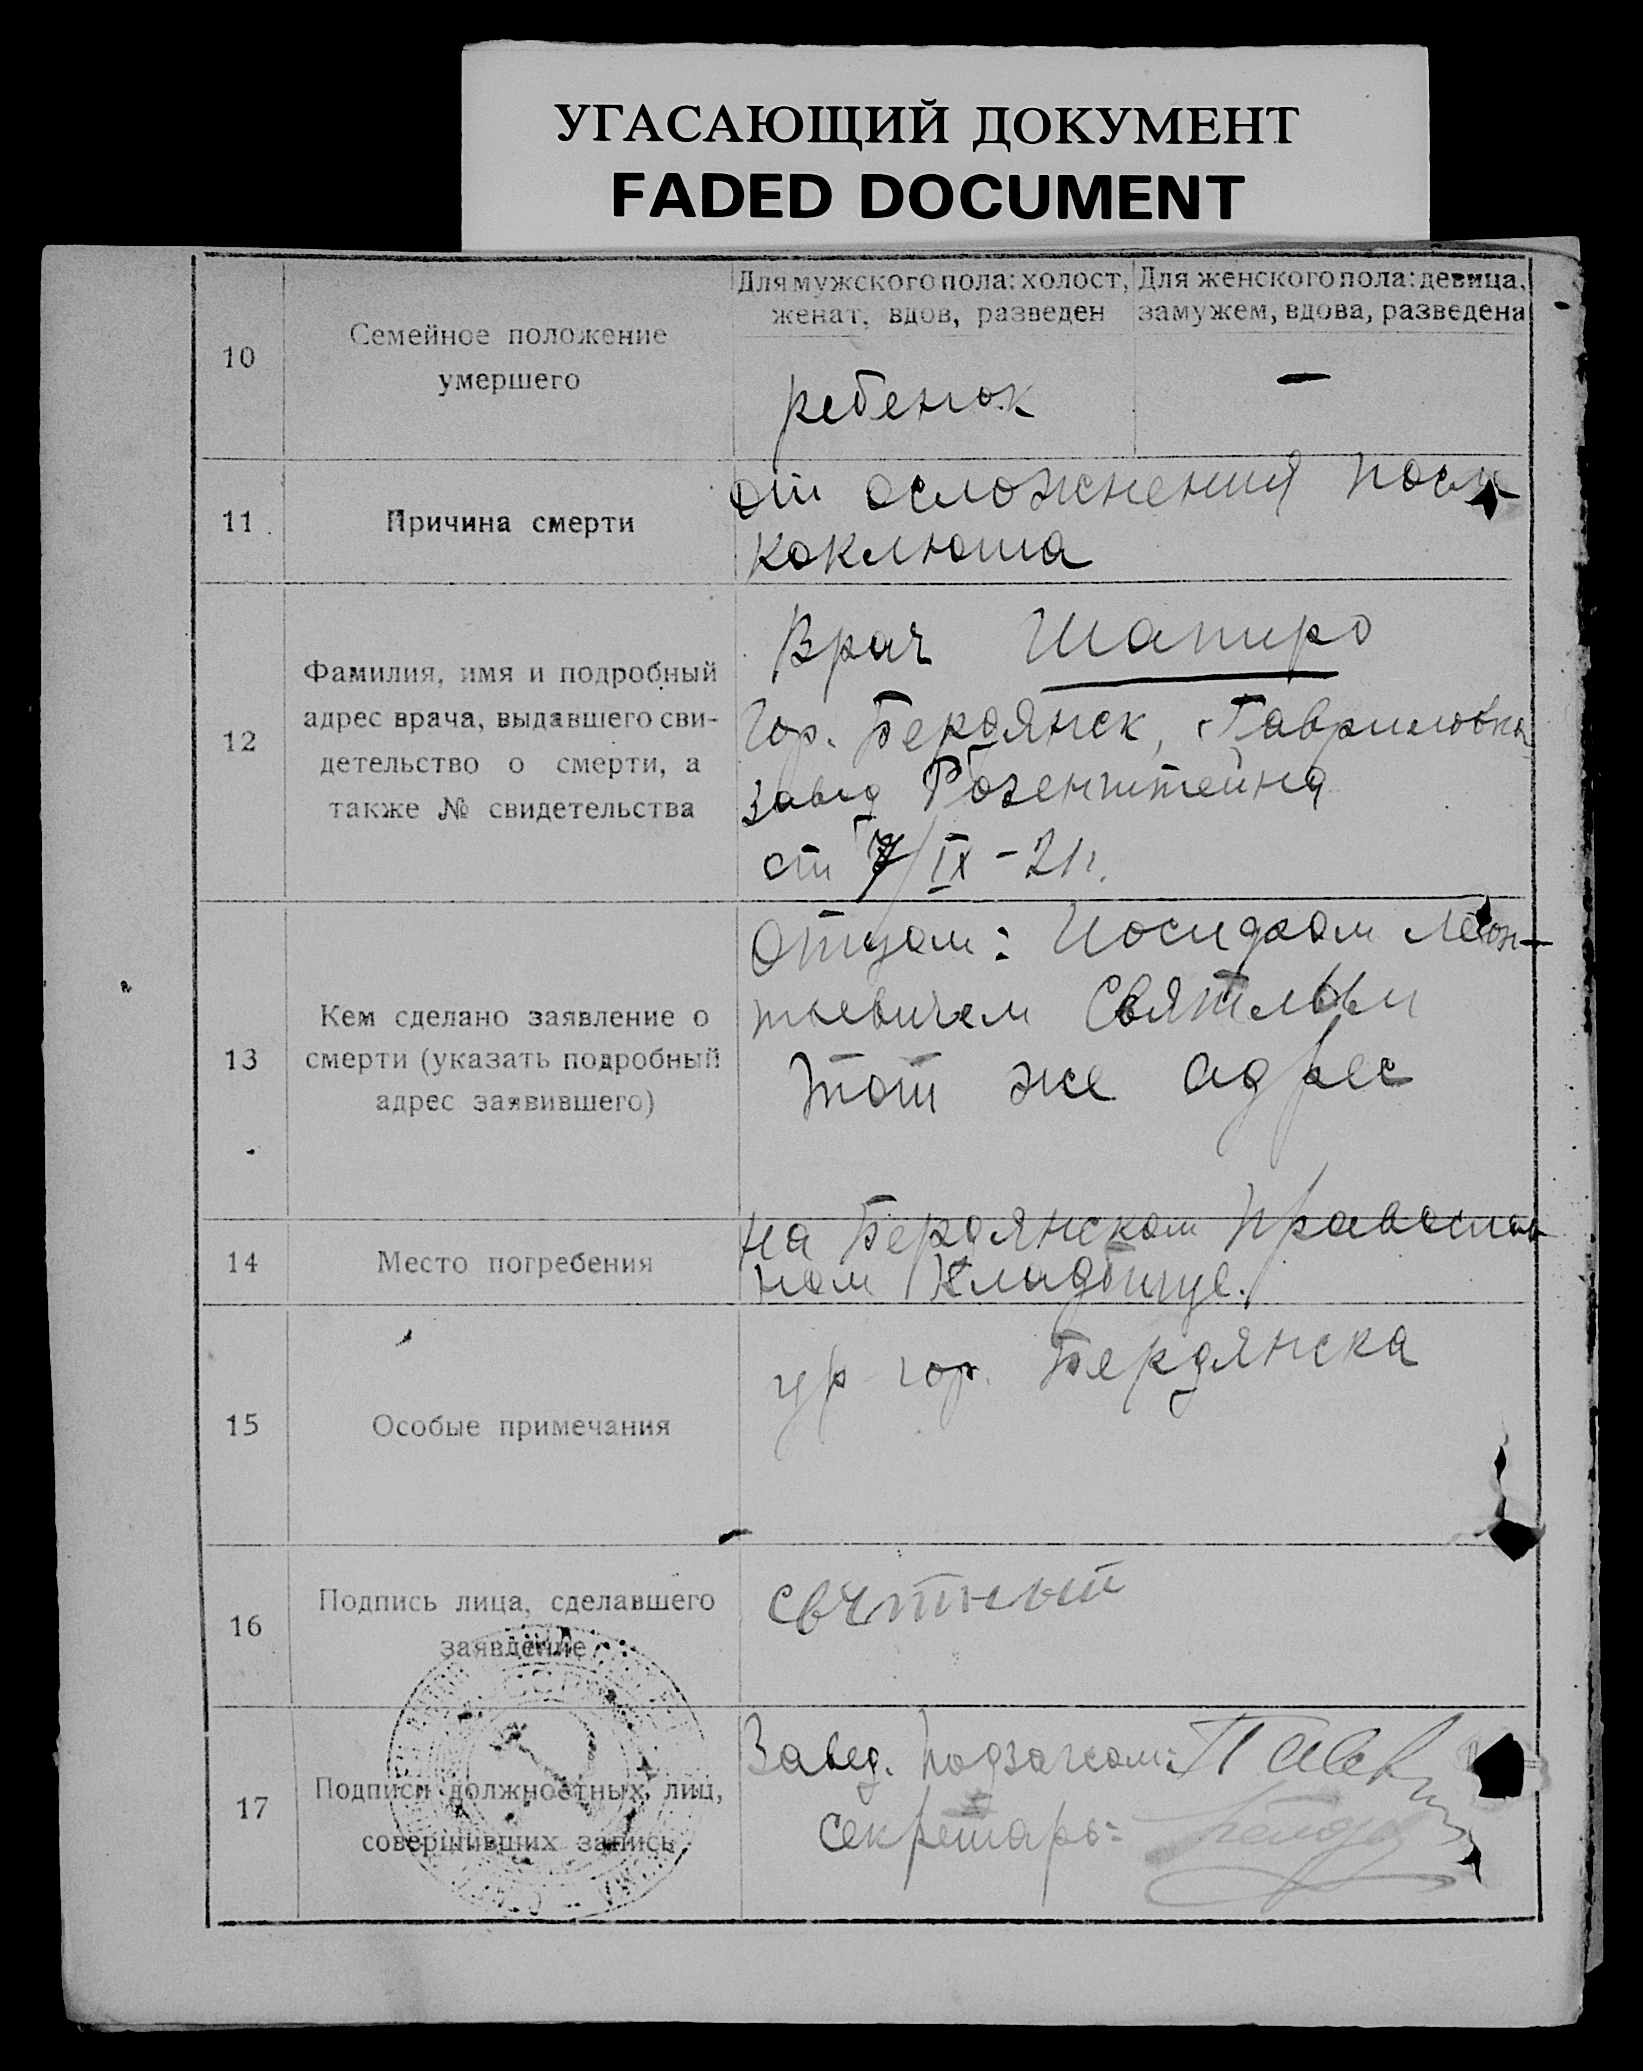 УГАСАЮЩИЙ ДОКУМЕНТ
FADED DOCUMENT
10
Семейное положение
умершего
Для мужского пола: холост,
женат, вдов, разведен
Для женского пола: девица,
замужем, вдова, разведена
ребенок
—
11
Причина смерти
от осложнения после
коклюша
12
Фамилия, имя и подробный
адрес врача, выдавшего сви-
детельство о смерти, а
также № свидетельства
Врач Шапиро
Гор. Бердянск, Гавриловка
завод Розенштейна
от 7/IX-21г.
13
Кем сделано заявление о
смерти (указать подробный
адрес заявившего)
Отцом: Леон-
тьевичем
Тот же адрес
14
Место погребения
на Бердянском Православ
ном Кладбище.
15
Особые примечания
ур гор. Бердянска
16
Подпись лица, сделавшего
заявление
17
Подписи должностных лиц,
совершивших запись
Завед. подзагсом:
секретарь: